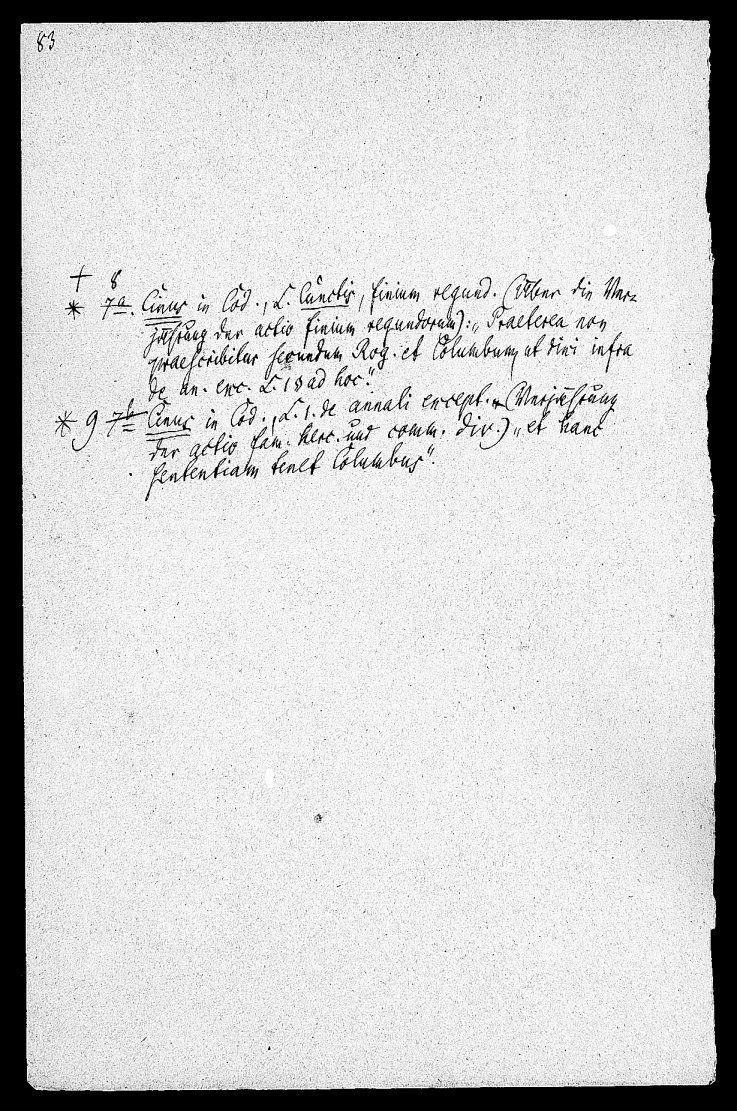 83
+ 8
* 7a. Cinus in Cod., L. Cunctis, finium regund. (Über die Ver=
jährung der actio finium regundorum): „Praeterea non
praescribitur secundum Rog. et Columbum, ut dixi infra
de an. exc. L. 1 ad hoc."
* 9 7b Cinus in Cod., L. 1. de annali except. (Verjährung
der actio fam. herc. und comm. div.) „et hanc
sententiam tenet Columbus".